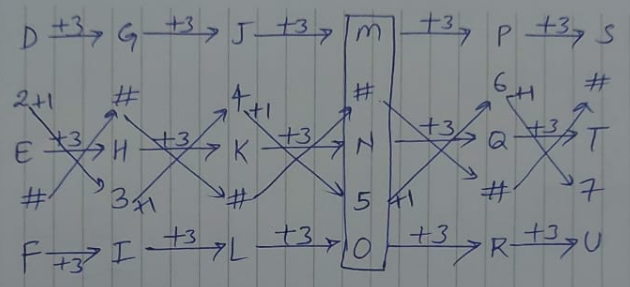 D +3 G +3 J +3 M +3 P +3 S
2 +1 # 4 +1 # 6 +1 #
E +3 H +3 K +3 N +3 Q +3 T
# 3 +1 # 5 +1 # 7
F +3 I +3 L +3 O +3 R +3 U